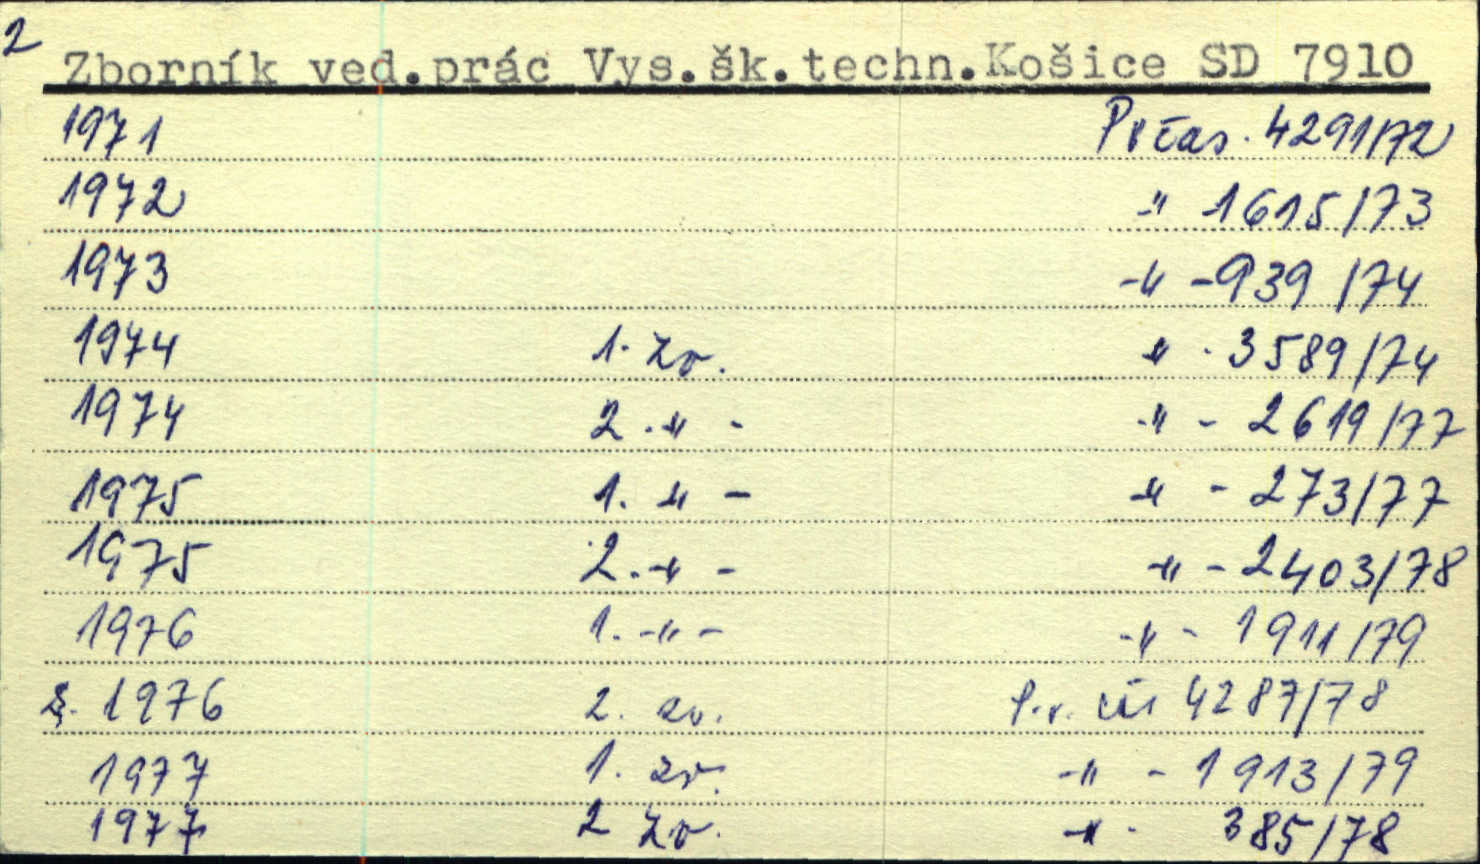 2
Zborník ved.prác Vys.šk.techn.Košice SD 7910
1971 Pr čas. 4291/72
1972 -"- 1615/73
1973 -"- 939/74
1974 1. zv. " - 3589/74
1974 2. -"- -"- 2619/77
1975 1. -"- -"- 273/77
1975 2. -"- -"- 2403/78
1976 1. -"- -"- 1911/79
1976 2. zv. P.r. čas 4287/78
1977 1. zv. -"- 1913/79
1977 2 zv. -"- 385/78